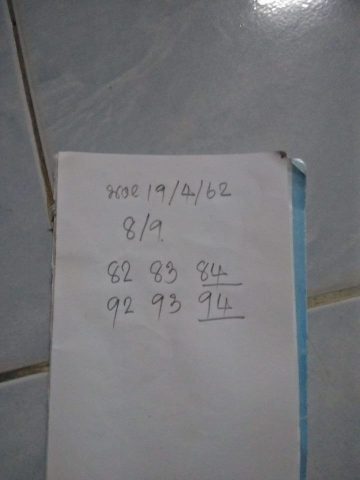 ฮอย 19/4/62
8/9
82 83 84
92 93 94